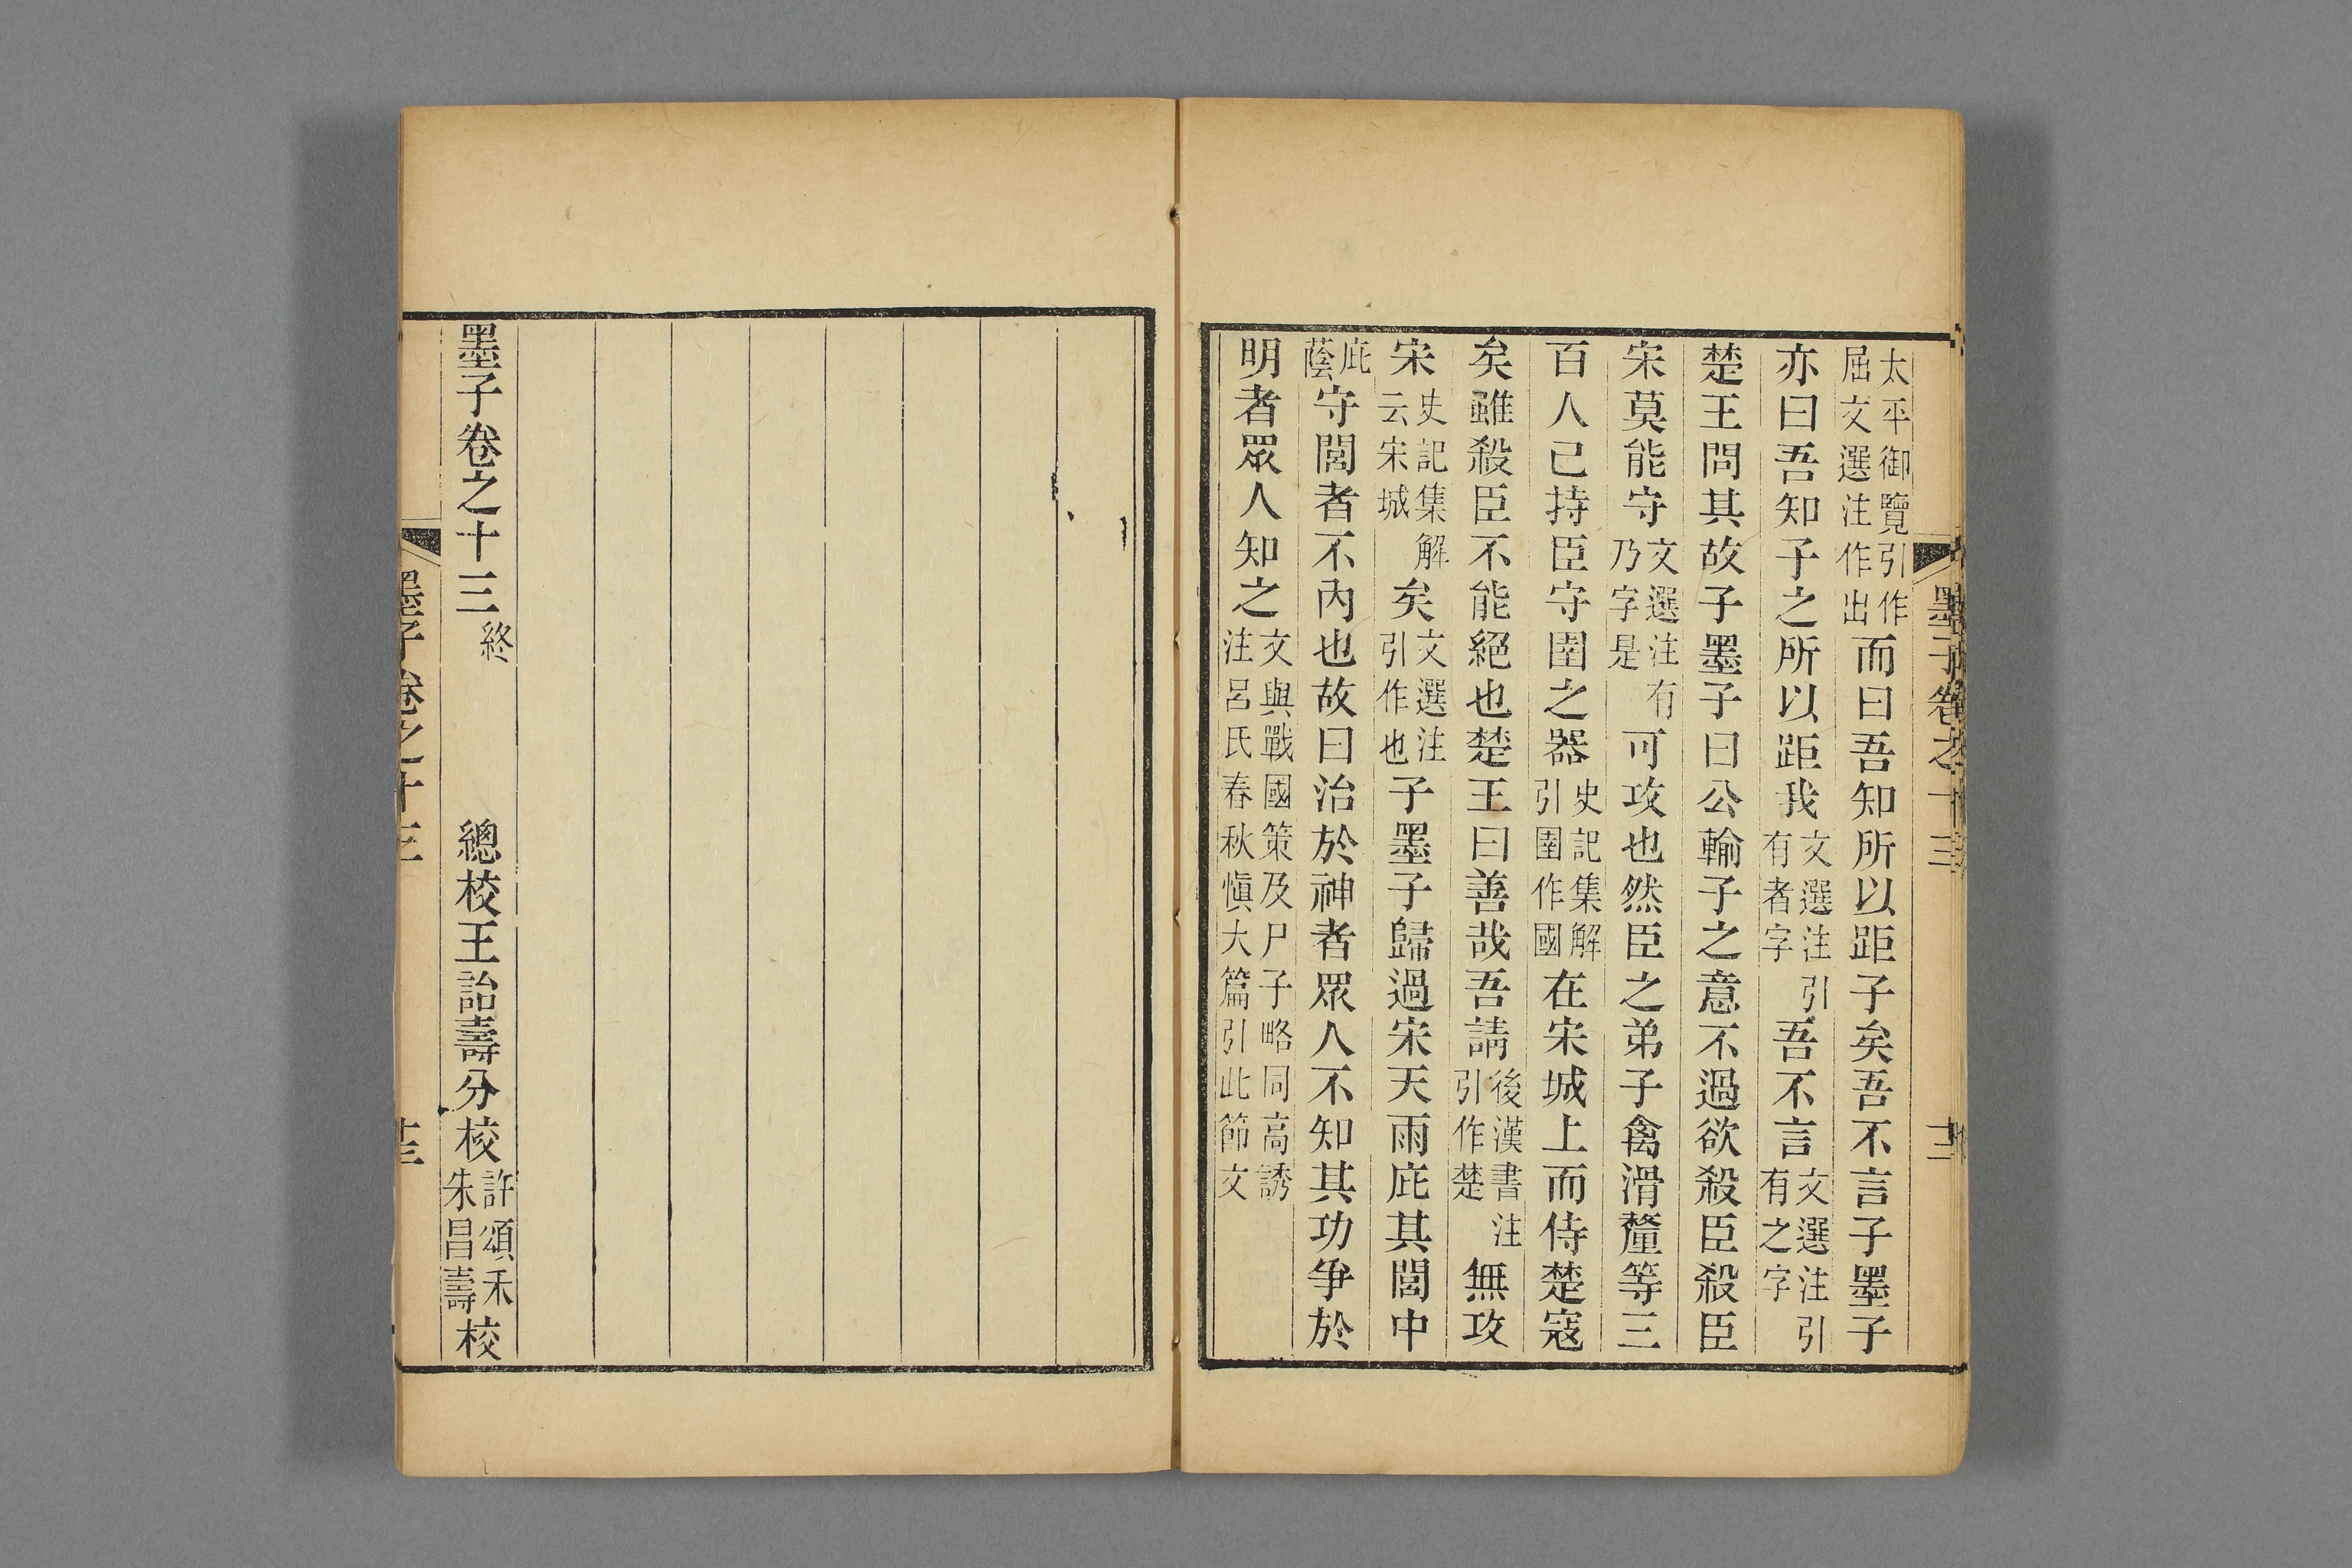 墨子卷之十三
太平御覽引作屈文選注作出而曰吾知所以距子矣吾不言子墨子
亦曰吾知子之所以距我文選注引有者字吾不言文選注引有之字
楚王問其故子墨子曰公輸子之意不過欲殺臣殺臣
宋莫能守文選注有乃字是可攻也然臣之弟子禽滑釐等三
百人己持臣守圉之器史記集解引圉作國在宋城上而侍楚寇
矣雖殺臣不能絕也楚王曰善哉吾請後漢書注引作楚無攻
宋史記集解云宋城矣文選注引作也子墨子歸過宋天雨庇其閭中
庇蔭守閭者不內也故曰治於神者眾人不知其功爭於
明者眾人知之文與戰國策及尸子略同高誘注呂氏春秋愼大篇引此節文
墨子卷之十三終 總校王詒壽分校許頌禾朱昌壽校
墨子卷之十三